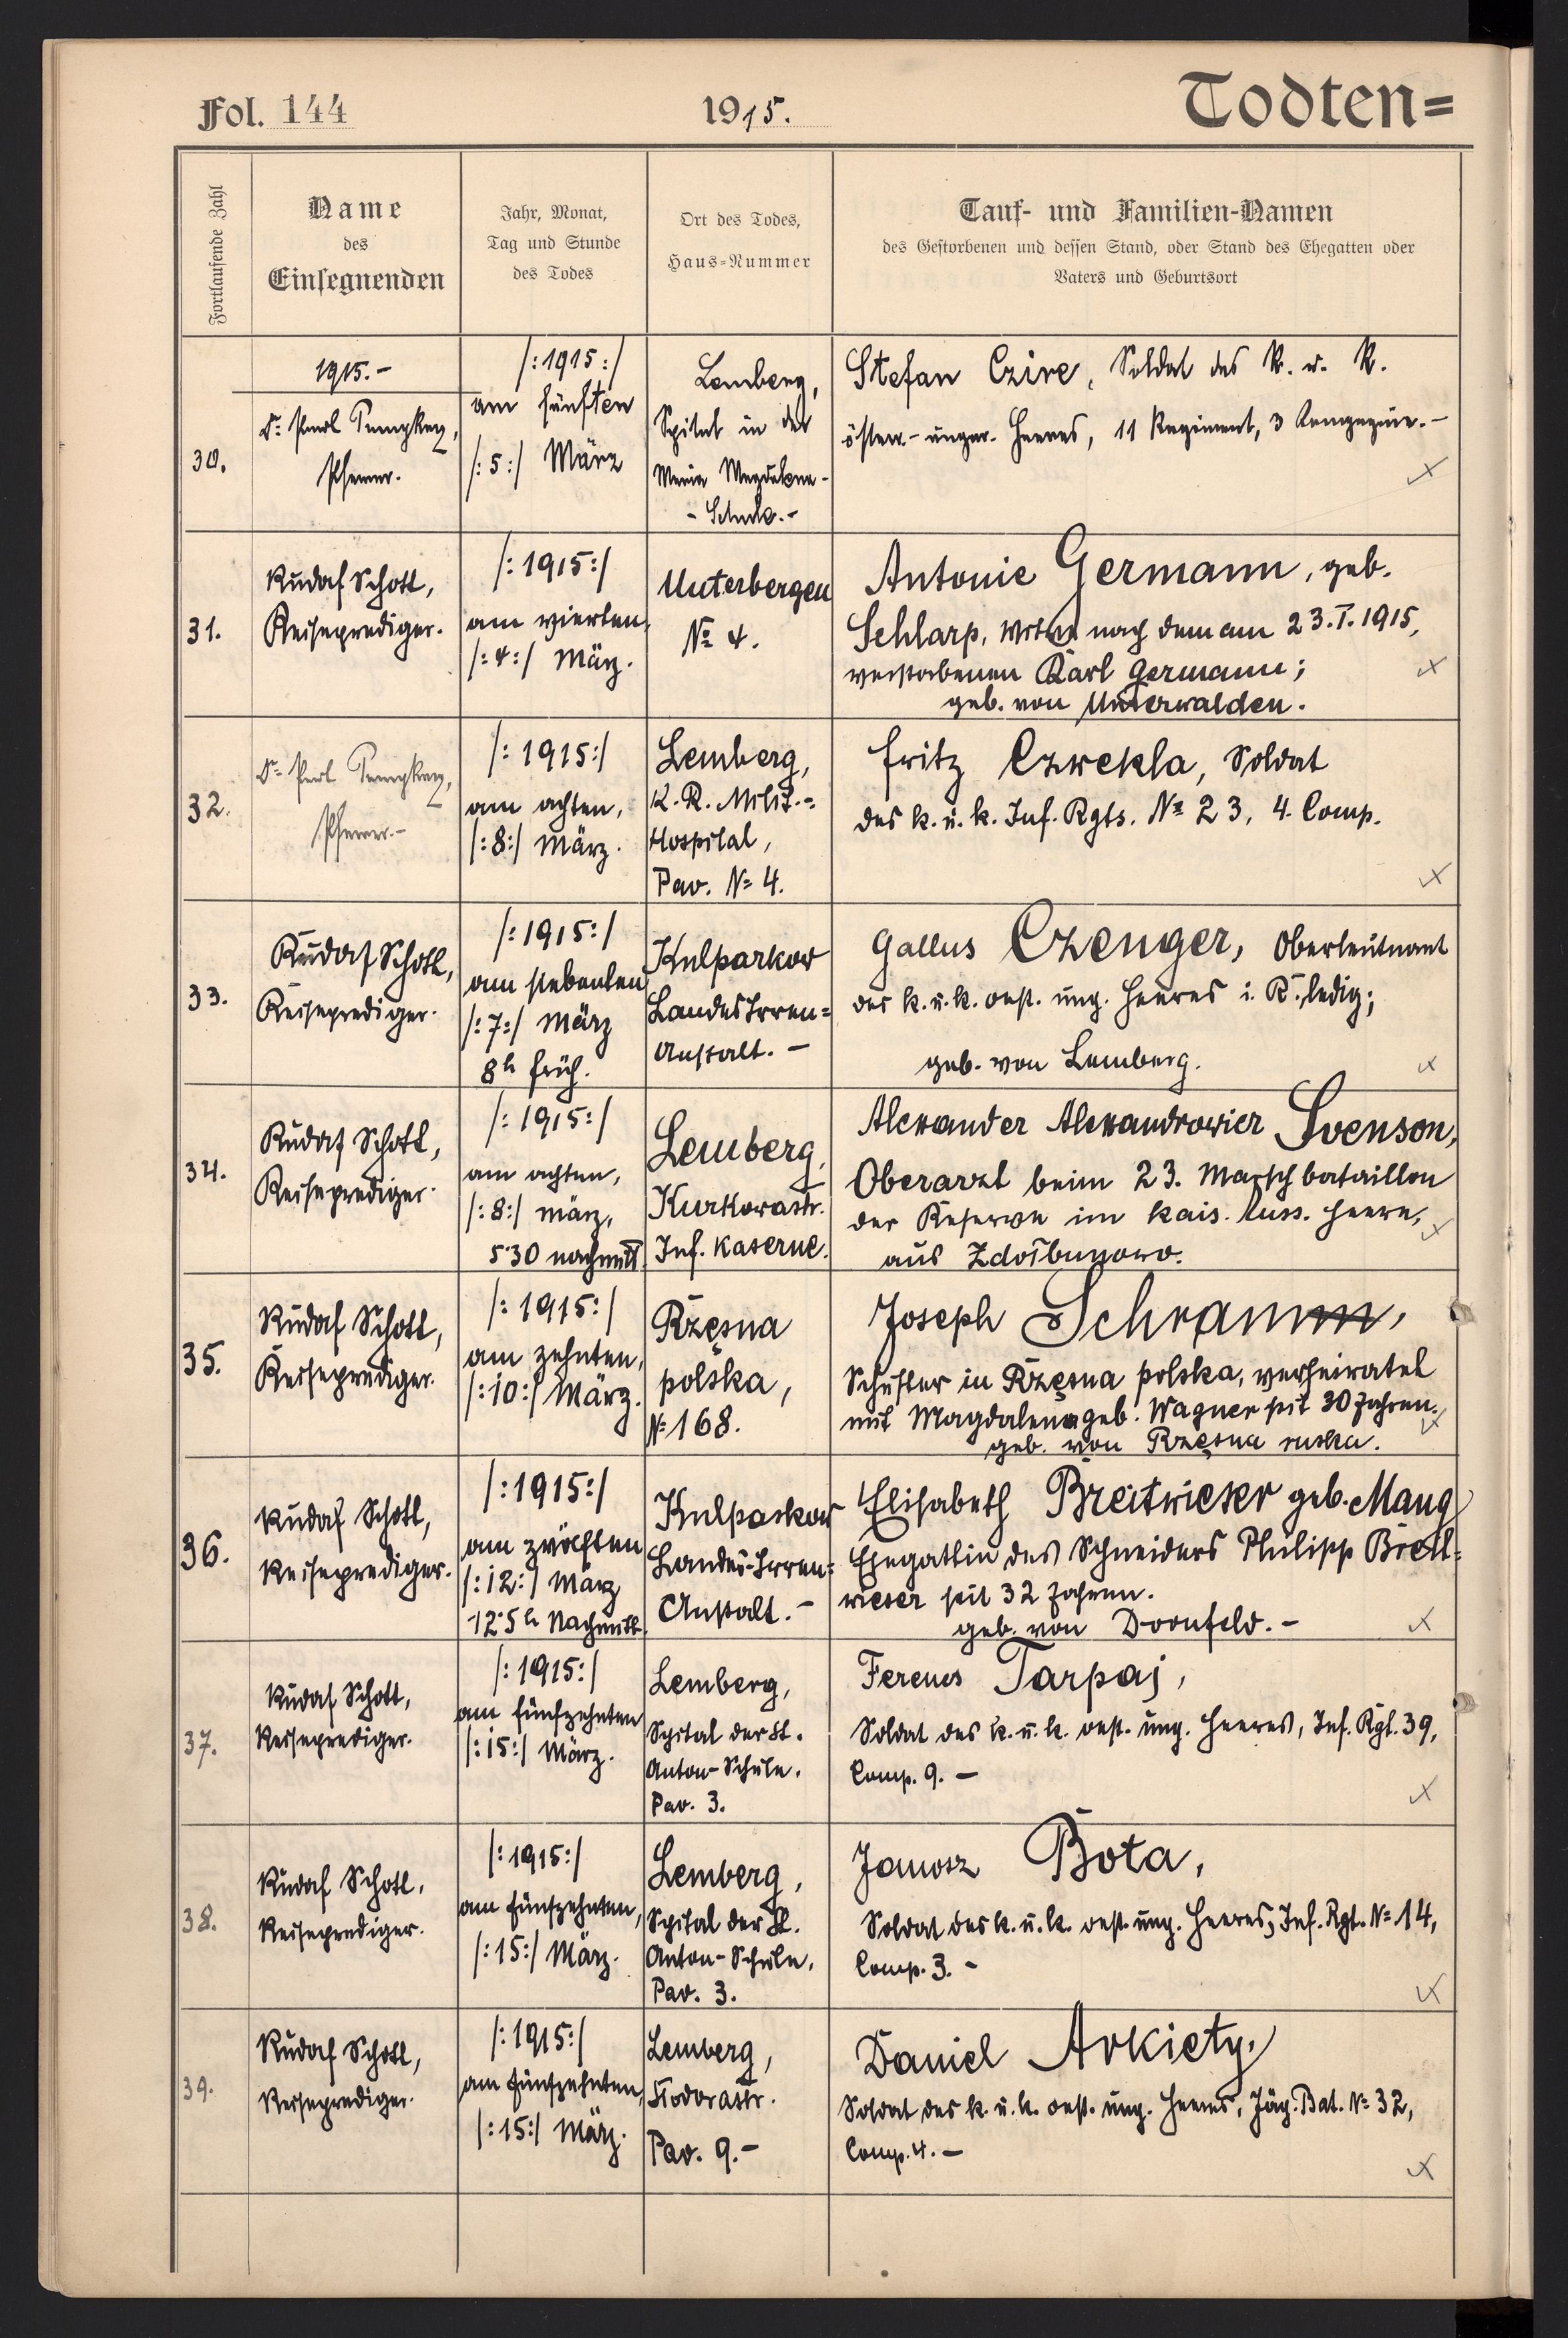 Fol. 144
1915.
Todten=
Fortlaufende Zahl
Name
des
Einsegnenden
Jahr, Monat,
Tag und Stunde
des Todes
Ort des Todes,
Haus-Nummer
Tauf- und Familien-Namen
des Gestorbenen und dessen Stand, oder Stand des Ehegatten oder
Vaters und Geburtsort
30.
1915.-
Dr.
Pfarrer.
/:1915:/
am fünften
/:5:/ März
Lemberg,
Spital in der
Maria Magdalena-
-Schule.-
Stefan Czire, Soldat des K. u. K.
österr.-ungar. Heeres, 11 Regiment, 3 Kompagnie.-
31.
Rudolf Schott,
Reiseprediger.
/:1915:/
am vierten,
/:4:/ März.
Unterbergen
№ 4.
Antonie Germann, geb.
Schlarp, Witwe nach dem am 23.I.1915,
verstorbenen Karl Germann;
geb. von Unterwalden.
32.
Dr.
Pfarrer.-
/:1915:/
am achten,
/:8:/ März.
Lemberg,
K.R. Milit.-
Hospital,
Pav. № 4.
Fritz Czwekla, Soldat
des k. u. k. Inf. Rgts. № 23, 4. Comp.
33.
Rudolf Schott,
Reiseprediger.
/:1915:/
am siebenten
/:7:/ März
8h früh.
Kulparkow
Landes Irren=
Anstalt. -
Gallus Czenger, Oberleutnant
des k. u. k. oest. ung. Heeres i. R., ledig;
geb. von Lemberg.
34.
Rudolf Schott,
Reiseprediger.
/:1915:/
am achten,
/:8:/ März,
5.30 nachmitt.
Lemberg,
Kurkowastr.
Inf. Kaserne.
Alexander Alexandrowicz Svenson,
Oberarzt beim 23. Marschbataillon
der Reserve im kais. russ. Heere,
aus Zdolbunowo.
35.
Rudolf Schott,
Reiseprediger.
/:1915:/
am zehnten,
/:10:/ März.
Rzęsna
polska,
№ 168.
Joseph Schramm,
Schuster in Rzęsna polska, verheiratet
mit Magdalena geb. Wagner seit 30 Jahren.
geb. von Rzęsna ruska.
36.
Rudolf Schott,
Reiseprediger.
/:1915:/
am zwölften
/:12:/ März
12.5h Nachmitt.
Kulparkow
Landes-Irren=
Anstalt.-
Elisabeth Breitwieser geb. Mang
Ehegattin des Schneiders Philipp Breit=
wieser seit 32 Jahren.
geb. von Dornfeld.-
37.
Rudolf Schott,
Reiseprediger.
/:1915:/
am fünfzehnten
/:15:/ März.
Lemberg,
Spital der St.
Anton-Schule.
Pav. 3.
Ferencs Tarpaj,
Soldat des k. u. k. oest. ung. Heeres, Inf. Rgt. 39,
Comp. 9. -
38.
Rudolf Schott,
Reiseprediger.
/:1915:/
am fünfzehnten,
/:15:/ März.
Lemberg,
Spital der St.
Anton-Schule,
Pav. 3.
Janosz Bota,
Soldat des k. u. k. oest. ung. Heeres, Inf. Rgt. № 14,
Comp. 3. -
39.
Rudolf Schott,
Reiseprediger.
/:1915:/
am fünfzehnten,
/:15:/ März.
Lemberg,
Pav. 9.-
Daniel Arkiety,
Soldat des k. u. k. oest. ung. Heeres, Jäg. Bat. № 32,
Comp. 4. -